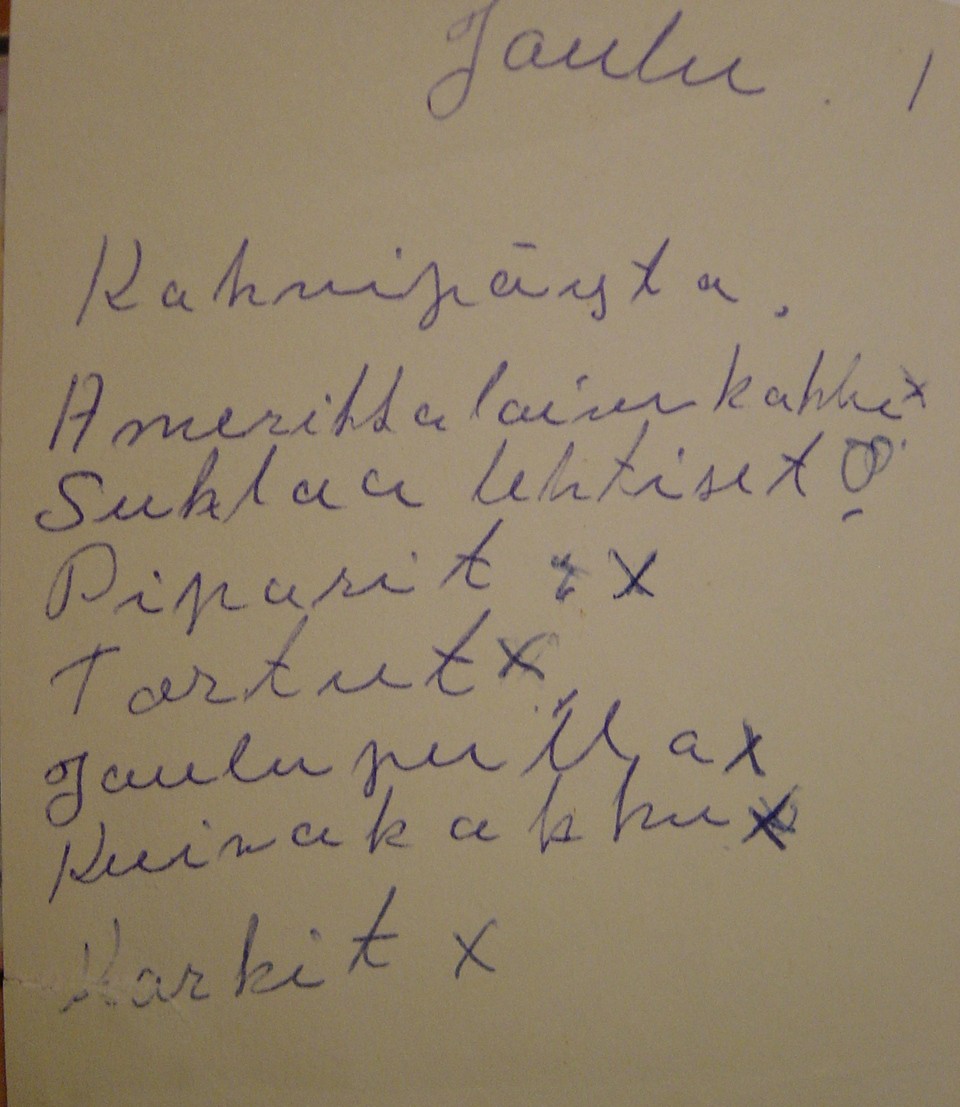 Joulu. /
Kahvipöytä.
Amerikkalainen kakku x
Suklaa lehtiset
Piparit x
Tortut x
Joulupulla x
Kuivakakku x
Karkit x